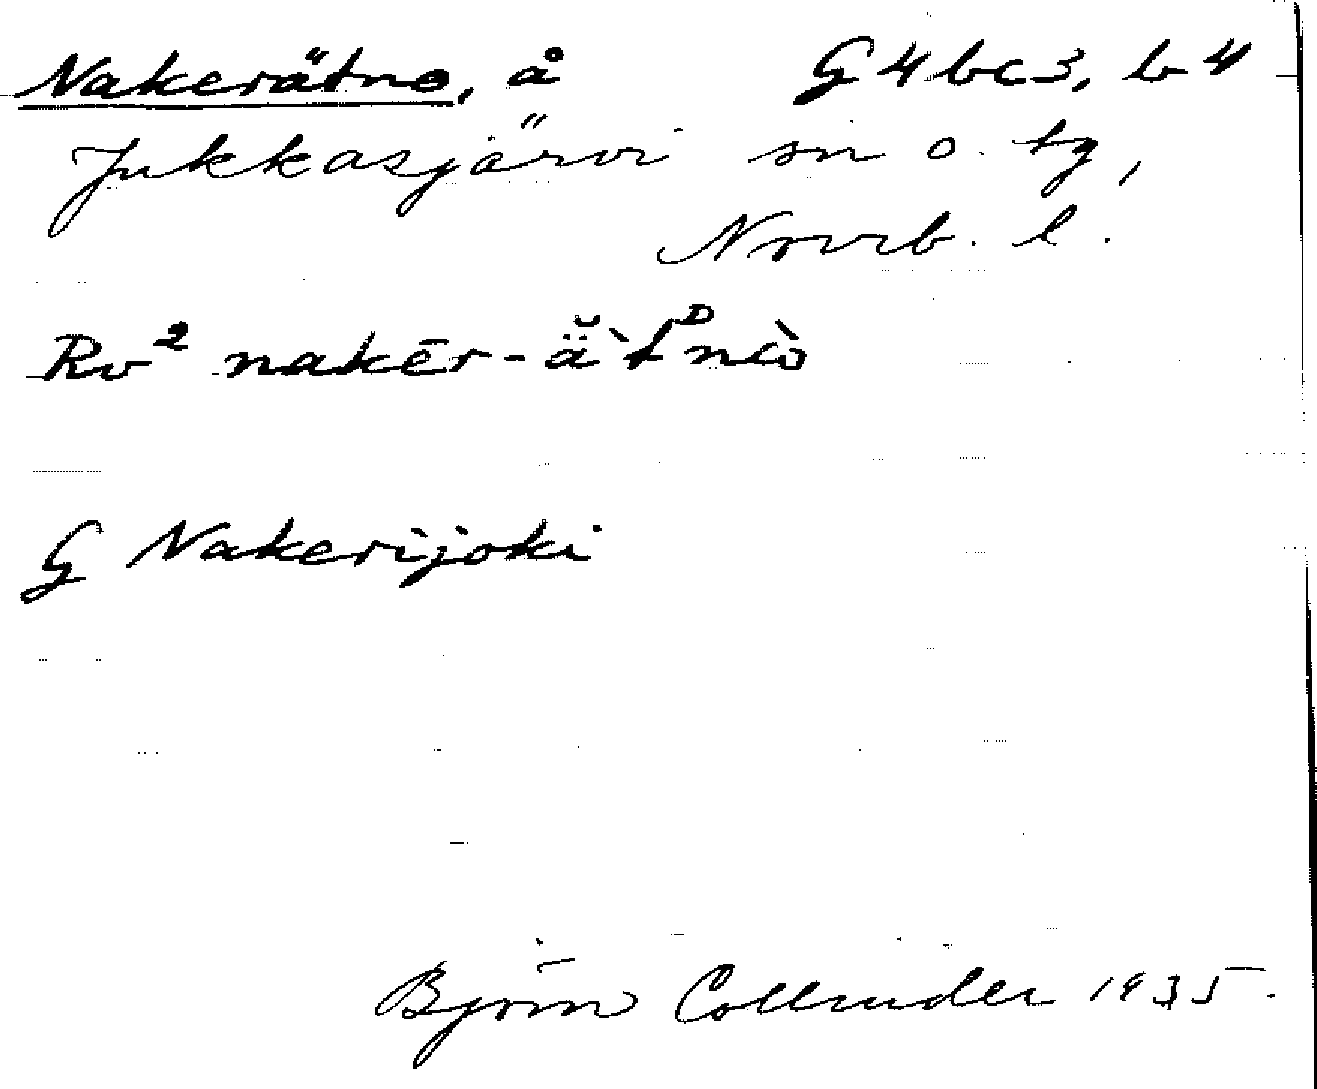 Nakerätno, å G4bc3, b4
Jukkasjärvi sn o. tg,
Norrb. l.
Rv² nakēr-ä̆̀tᴰnò
G Nakerijoki
Björn Collinder 1935.